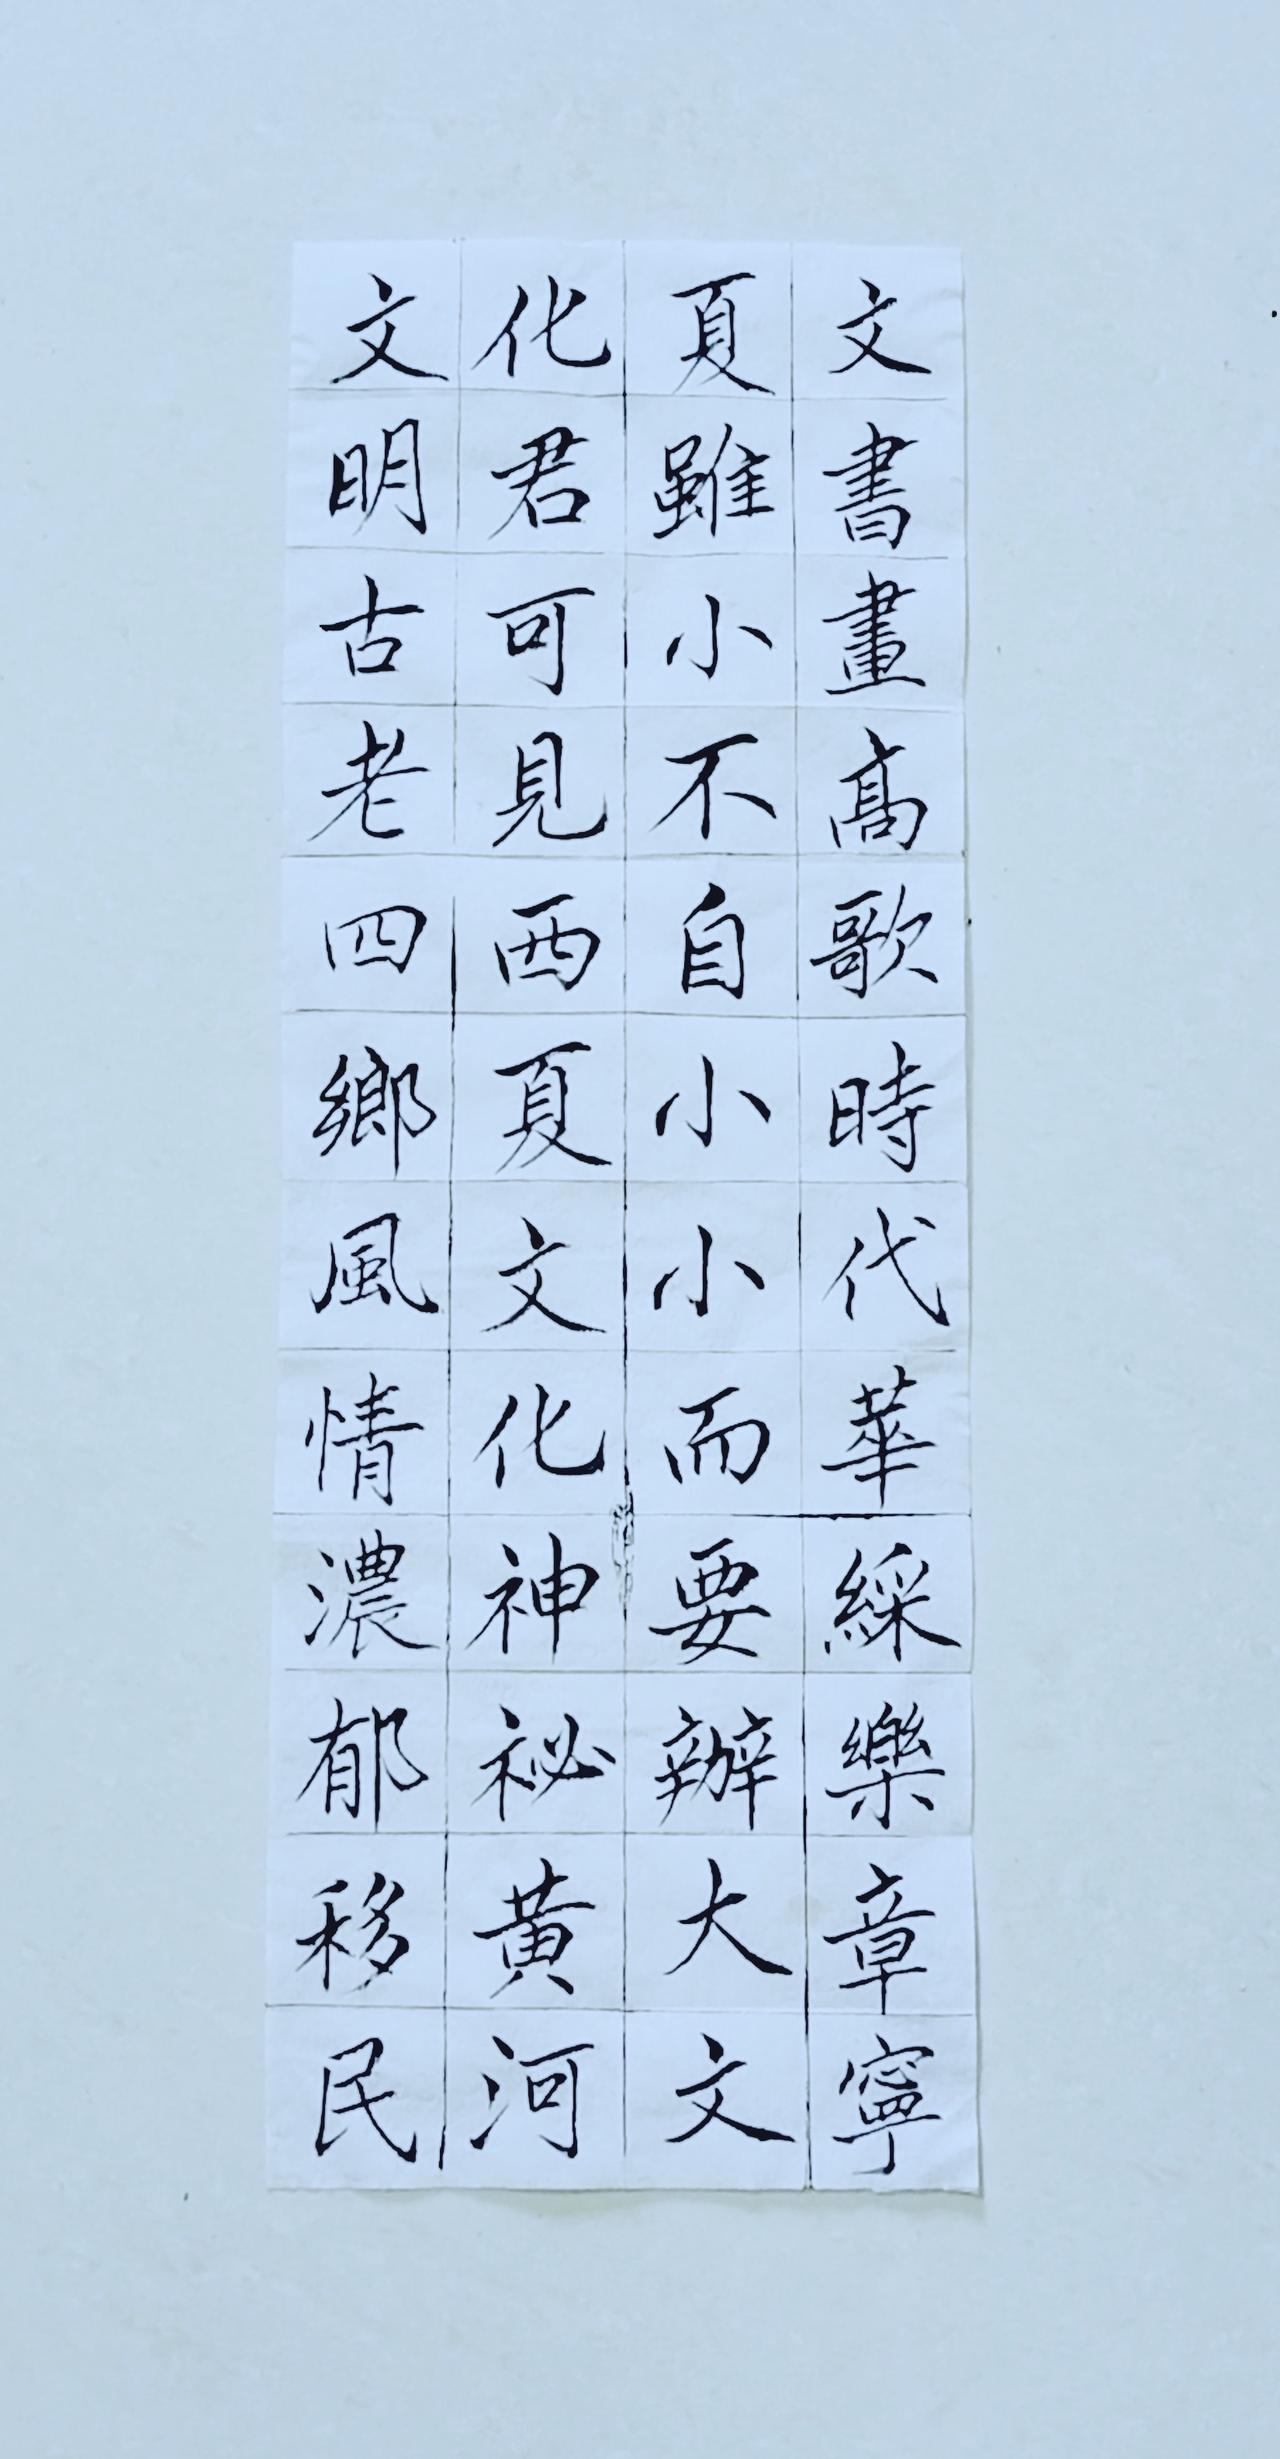 文書畫高歌時代華綵樂章寧
夏雖小不自小小而要辦大文
化君可見西夏文化神祕黃河
文明古老四鄉風情濃郁移民